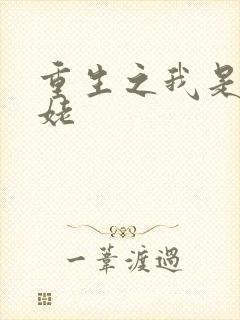 重生之我是
姥
一葦渡過